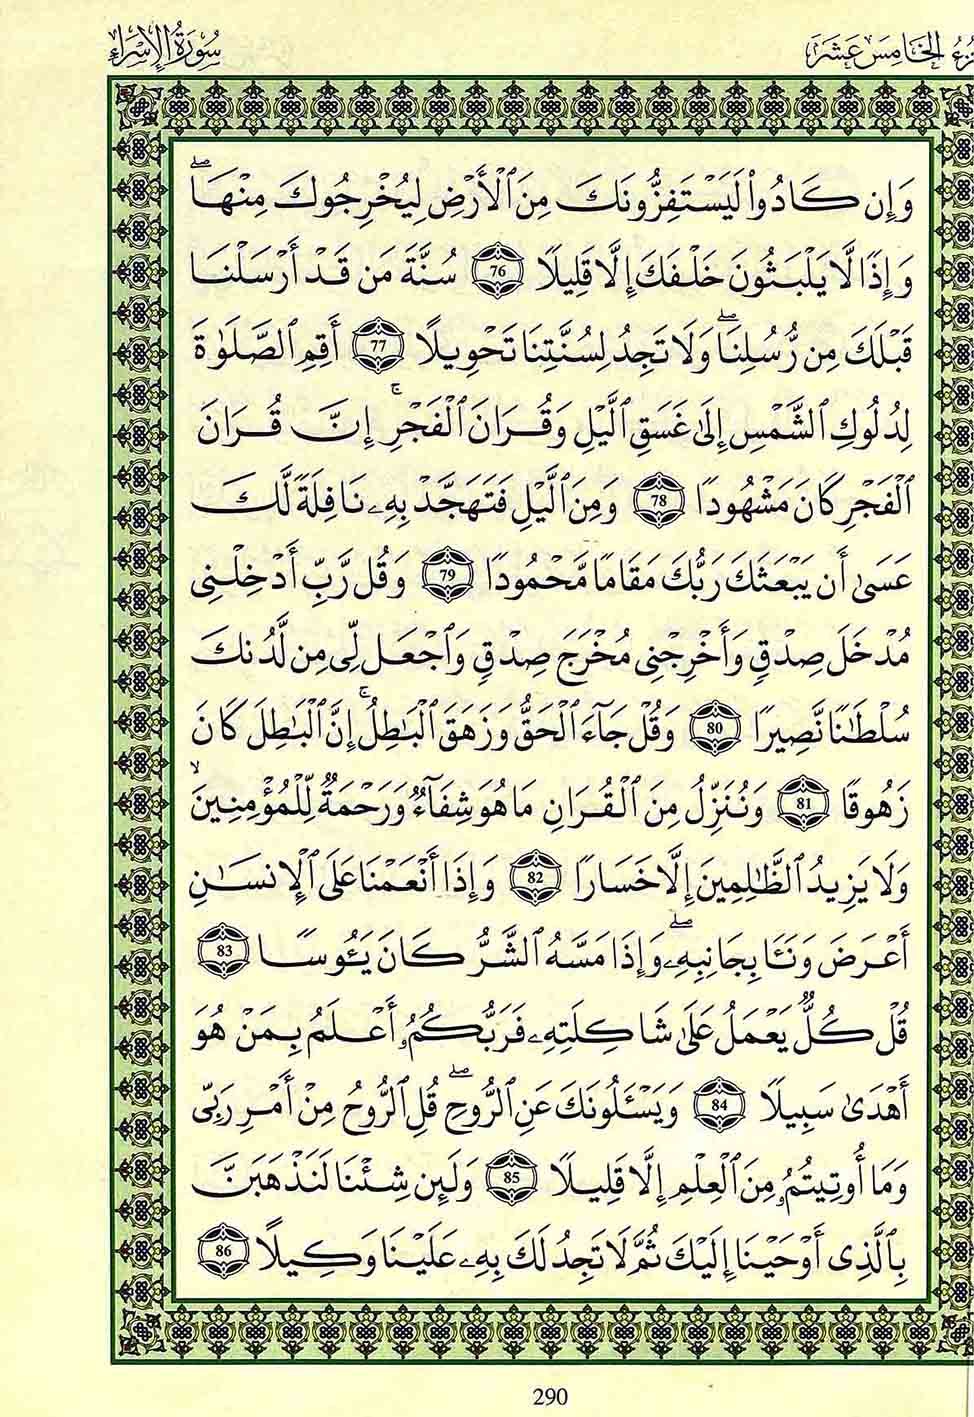 الجزء الخامس عشر
سورة الإسراء
وَإِن كَادُوا۟ لَيَسْتَفِزُّونَكَ مِنَ ٱلْأَرْضِ لِيُخْرِجُوكَ مِنْهَاۖ
وَإِذًا لَّا يَلْبَثُونَ خَلْفَكَ إِلَّا قَلِيلًا 76 سُنَّةَ مَن قَدْ أَرْسَلْنَا
قَبْلَكَ مِن رُّسُلِنَاۖ وَلَا تَجِدُ لِسُنَّتِنَا تَحْوِيلًا 77 أَقِمِ ٱلصَّلَوٰةَ
لِدُلُوكِ ٱلشَّمْسِ إِلَىٰ غَسَقِ ٱلَّيْلِ وَقُرَانَ ٱلْفَجْرِۚ إِنَّ قُرَانَ
ٱلْفَجْرِ كَانَ مَشْهُودًا 78 وَمِنَ ٱلَّيْلِ فَتَهَجَّدْ بِهِۦ نَافِلَةً لَّكَ
عَسَىٰ أَن يَبْعَثَكَ رَبُّكَ مَقَامًا مَّحْمُودًا 79 وَقُل رَّبِّ أَدْخِلْنِى
مُدْخَلَ صِدْقٍ وَأَخْرِجْنِى مُخْرَجَ صِدْقٍ وَٱجْعَل لِّى مِن لَّدُنكَ
سُلْطَٰنًا نَّصِيرًا 80 وَقُلْ جَآءَ ٱلْحَقُّ وَزَهَقَ ٱلْبَٰطِلُۚ إِنَّ ٱلْبَٰطِلَ كَانَ
زَهُوقًا 81 وَنُنَزِّلُ مِنَ ٱلْقُرَانِ مَا هُوَ شِفَآءٌ وَرَحْمَةٌ لِّلْمُؤْمِنِينَۙ
وَلَا يَزِيدُ ٱلظَّٰلِمِينَ إِلَّا خَسَارًا 82 وَإِذَا أَنْعَمْنَا عَلَى ٱلْإِنسَٰنِ
أَعْرَضَ وَنَـَٔا بِجَانِبِهِۦۖ وَإِذَا مَسَّهُ ٱلشَّرُّ كَانَ يَـُٔوسًا 83
قُلْ كُلٌّ يَعْمَلُ عَلَىٰ شَاكِلَتِهِۦ فَرَبُّكُمُۥ أَعْلَمُ بِمَنْ هُوَ
أَهْدَىٰ سَبِيلًا 84 وَيَسْـَٔلُونَكَ عَنِ ٱلرُّوحِۖ قُلِ ٱلرُّوحُ مِنْ أَمْرِ رَبِّى
وَمَا أُوتِيتُمُۥ مِنَ ٱلْعِلْمِ إِلَّا قَلِيلًا 85 وَلَئِن شِئْنَا لَنَذْهَبَنَّ
بِٱلَّذِى أَوْحَيْنَا إِلَيْكَ ثُمَّ لَا تَجِدُ لَكَ بِهِۦ عَلَيْنَا وَكِيلًا 86
290